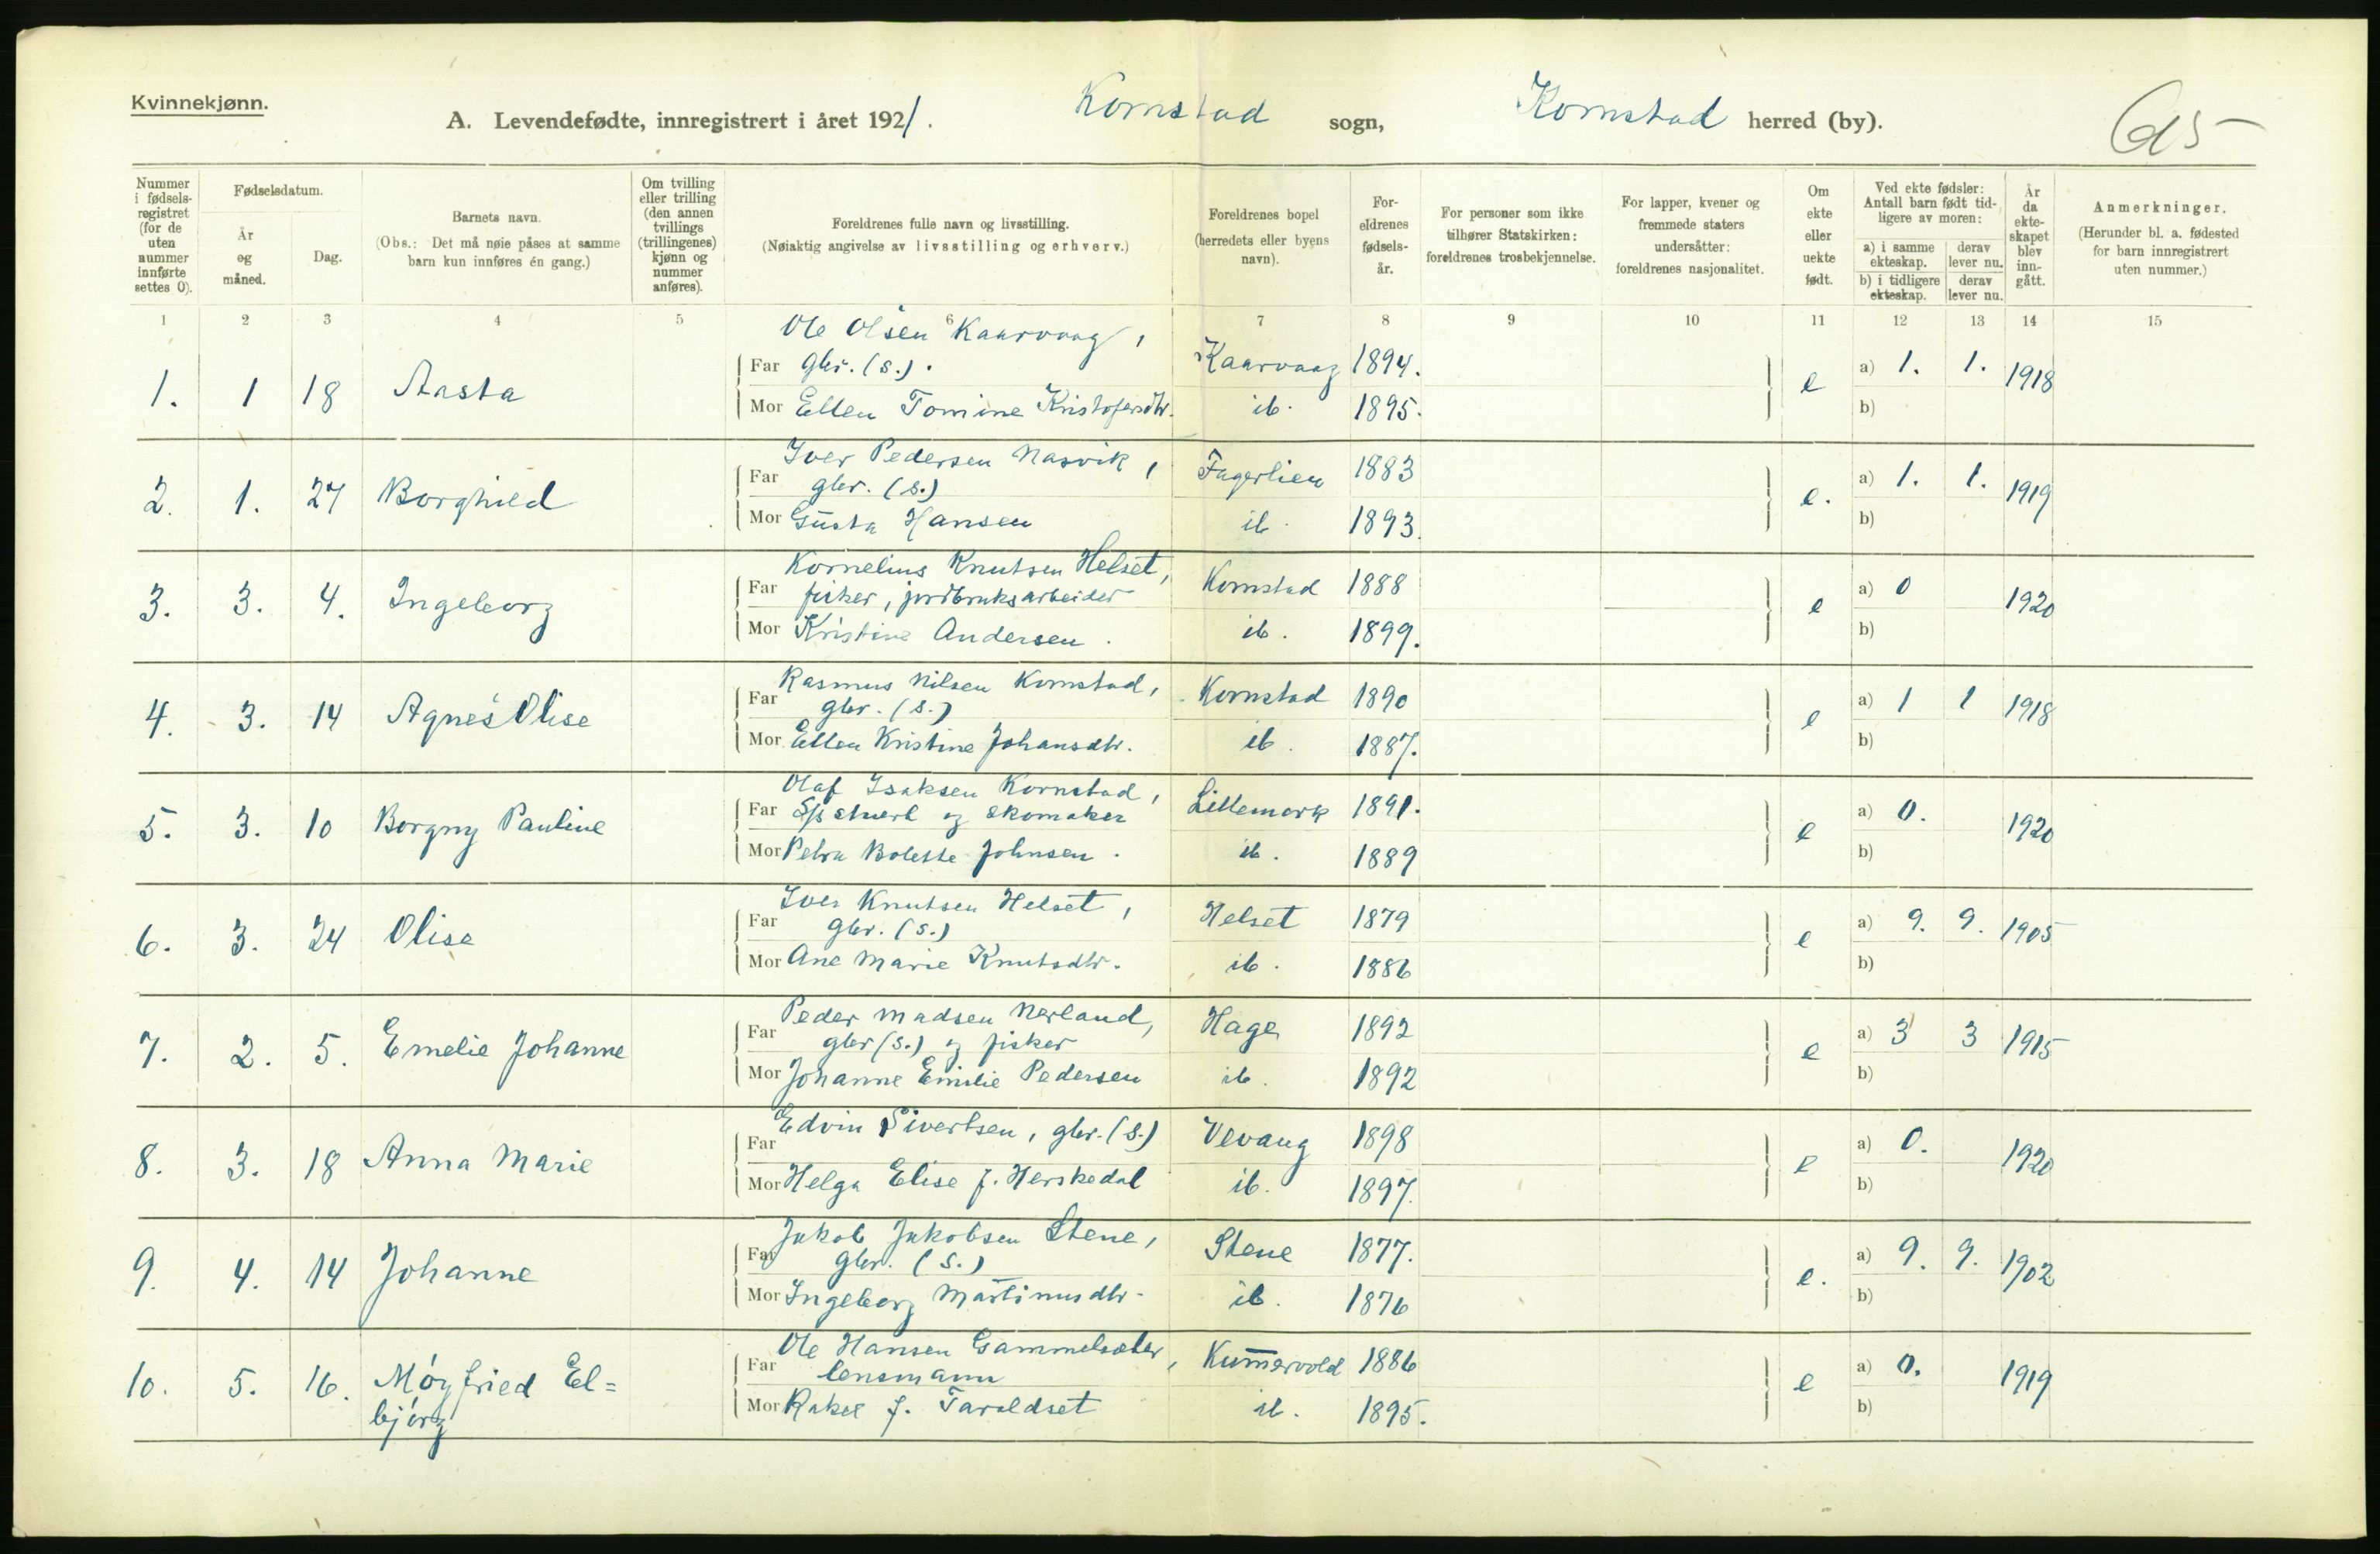 Kvinnekjønn.
A. Levendefødte, innregistrert i året 1921. Kornstad sogn, Kornstad herred (by).
Nummer i fødselsregistret (for de uten nummer innførte settes 0).
Fødselsdatum.
År og måned.
Dag.
Barnets navn.
(Obs.: Det må nøie påses at samme barn kun innføres én gang.)
Om tvilling eller trilling (den annen tvillings (trillingenes) kjønn og nummer anføres).
Foreldrenes fulle navn og livsstilling.
(Nøiaktig angivelse av livsstilling og erhverv.)
Foreldrenes bopel (herredets eller byens navn).
Foreldrenes fødselsår.
For personer som ikke tilhører Statskirken: foreldrenes trosbekjennelse.
For lapper, kvener og fremmede staters undersåtter: foreldrenes nasjonalitet.
Om ekte eller uekte født.
Ved ekte fødsler: Antall barn født tidligere av moren:
a) i samme ekteskap. derav lever nu.
b) i tidligere ekteskap. derav lever nu.
År da ekteskapet blev inngått.
Anmerkninger.
(Herunder bl. a. fødested for barn innregistrert uten nummer.)
1 2 3 4 5 6 7 8 9 10 11 12 13 14 15
Ole Olsen Kaarvaag,
1. 1 18 Aasta Far gbr. (s.). Kaarvaag 1894. e a) 1. 1. 1918
Mor Ellen Tomine Kristofersdtr. ib. 1895. b)
Iver Pedersen Nasvik,
2. 1. 27 Borghild Far gbr. (s.) Fagerlien 1883 e. a) 1. 1. 1919
Mor Gusta Hansen ib. 1893. b)
Kornelius Knutsen Helset,
3. 3. 4. Ingeborg Far fisker, jordbruksarbeider Kornstad 1888 e a) 0 1920
Mor Kristine Andersen. ib. 1899. b)
Rasmus Nilsen Kornstad,
4. 3. 14 Agnes Olise Far gbr. (s.) Kornstad 1890 e a) 1 1 1918
Mor Ellen Kristine Johansdtr. ib. 1887. b)
Olaf Isaksen Kornstad,
5. 3. 10 Borgny Pauline Far og skomaker Lillemork 1891. e a) 0. 1920
Mor Petra Bolette Johnsen. ib. 1889 b)
Iver Knutsen Helset,
6. 3. 24 Olise Far gbr. (s.) Helset 1879 e a) 9. 9. 1905
Mor Ane Marie Knutsdtr. ib. 1886 b)
Peder Madsen Nerland,
7. 2. 5. Emelie Johanne Far gbr (s.) og fisker Hage 1892 e a) 3 3 1915
Mor Johanne Emilie Pedersen ib. 1892 b)
Edvin Sivertsen, gbr. (s.)
8. 3. 18 Anna Marie Far Vevang 1898 e a) 0. 1920
Mor Helga Elise J. Herskedal ib. 1897. b)
Jakob Jakobsen Stene,
9. 4. 14 Johanne Far gbr. (s.) Stene 1877. e. a) 9. 9. 1902
Mor Ingeborg Martinusdtr. ib. 1876 b)
Ole Hansen Gammelsæter,
10. 5. 16. Møyfried El= Far lensmann Kumervold 1886 e a) 0. 1919
bjørg Mor Rakel J. Taraldset ib. 1895. b)